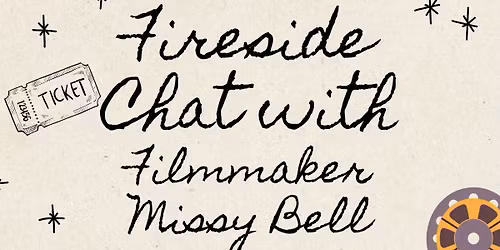 Fireside
TICKET
Chat with
Filmmaker
Missy Bell